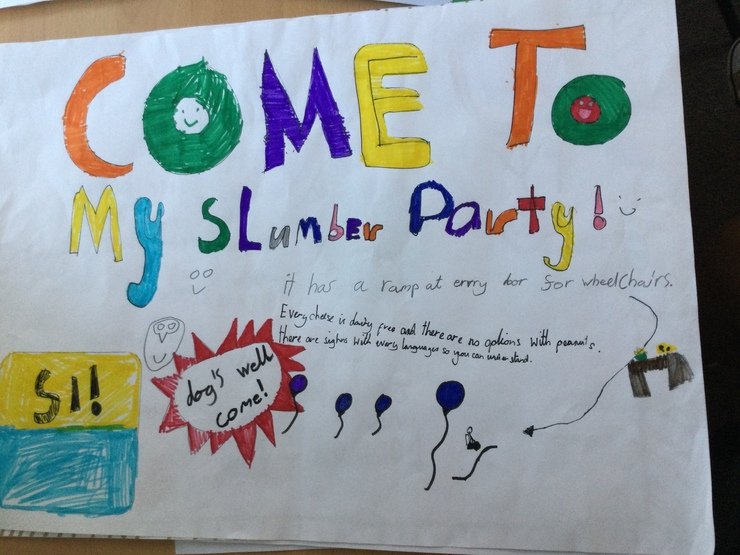 COME TO
My SLumber Party!
it has a ramp at evrry door for wheelchairs.
Every cheese is dairy free and there are no options with peanuts.
there are sighns with every languages so you can understand.
dog's well
come!
SI!